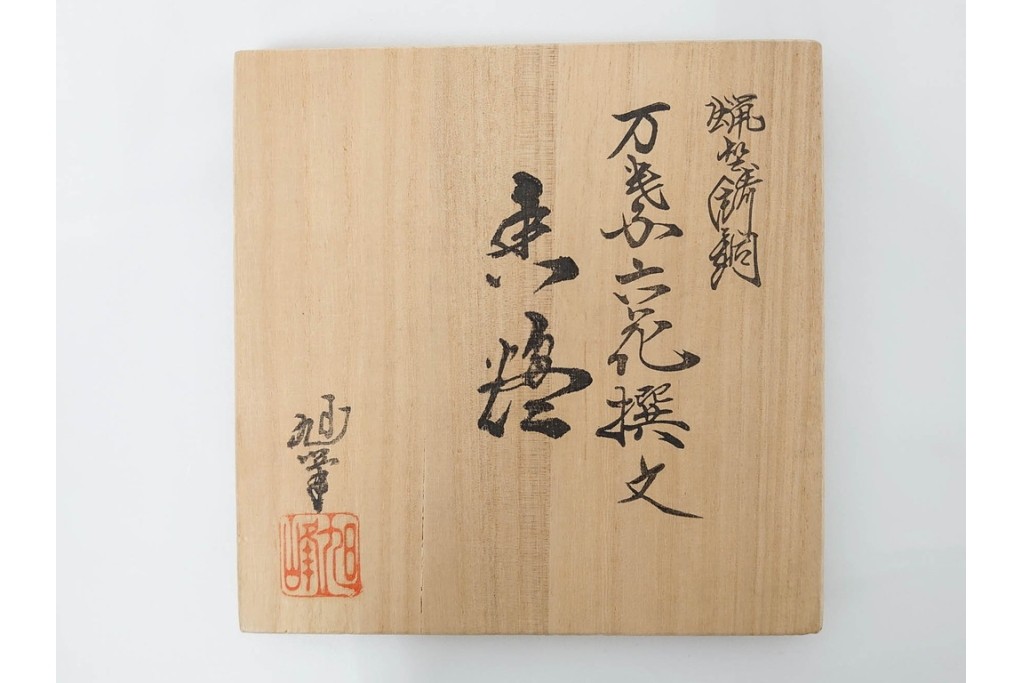 蝋型鋳銅
万葉六花撰文
香爐
旭峯
旭峰